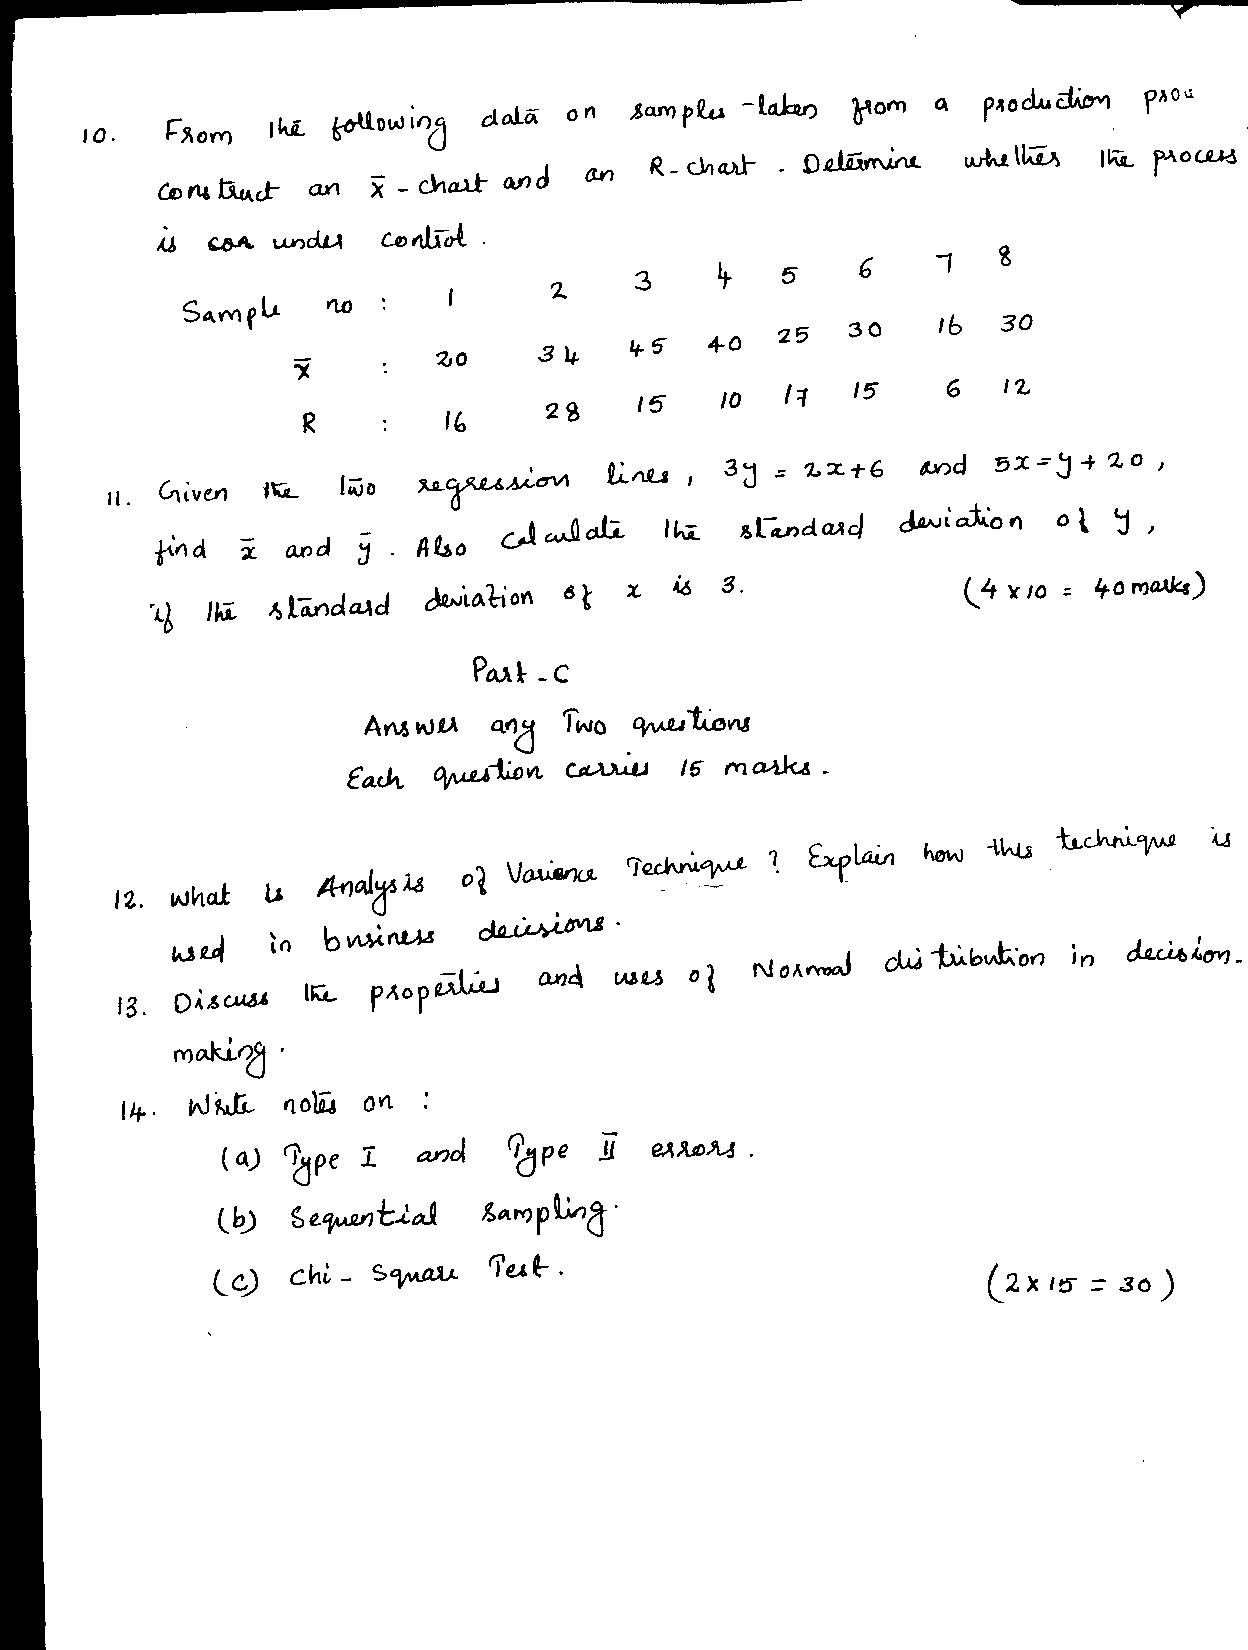 10. From the following data on samples taken from a production
construct an x̄ - chart and an R-chart. Determine whether the process
is under control.
Sample no : 1 2 3 4 5 6 7 8
x̄ : 20 34 45 40 25 30 16 30
R : 16 28 15 10 17 15 6 12
11. Given the two regression lines, 3y = 2x+6 and 5x=y+20,
find x̄ and ȳ. Also calculate the standard deviation of y,
if the standard deviation of x is 3. (4 x 10 = 40 marks)
Part - C
Answer any Two questions
Each question carries 15 marks.
12. What is Analysis of Variance Technique? Explain how this technique is
used in business decisions.
13. Discuss the properties and uses of Normal distribution in decision-
making.
14. Write notes on :
(a) Type I and Type II errors.
(b) Sequential sampling.
(c) Chi - Square Test.
(2 x 15 = 30)